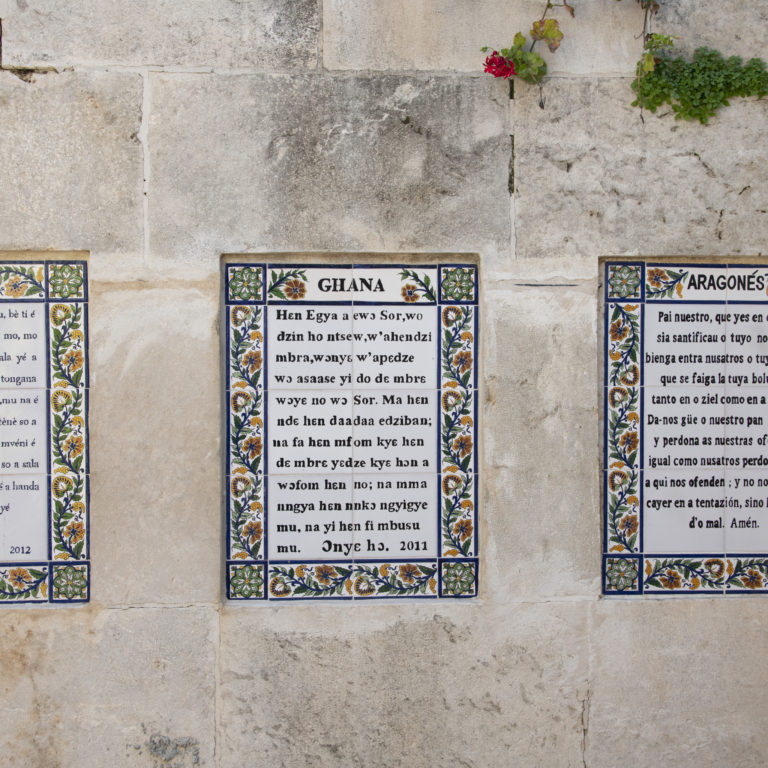 , bè ti é
mo, mo
ala yé a
tongana
,mu na é
tènè so a
mvéni é
so a sala
é a banda
yé
2012
GHANA
Hɛn Egya a ewɔ Sor,wo
dzin ho ntsew,w'ahendzi
mbra,wɔnyɛ w'apɛdze
wɔ asaase yi do dɛ mbrɛ
wɔyɛ no wɔ Sor. Ma hɛn
ndɛ hɛn daadaa edziban;
na fa hɛn mfom kyɛ hɛn
dɛ mbrɛ yɛdze kyɛ hɔn a
wɔfom hɛn no; na mma
nngya hɛn nnkɔ ngyigye
mu, na yi hɛn fi mbusu
mu. Ɔnyɛ hɔ. 2011
ARAGONÉS
Pai nuestro, que yes en o
sia santificau o tuyo no
bienga entra nusatros o tuy
que se faiga la tuya bolu
tanto en o ziel como en a
Da-nos güe o nuestro pan
y perdona as nuestras of
igual como nusatros perdo
a qui nos ofenden ; y no no
cayer en a tentazión, sino l
d'o mal. Amén.